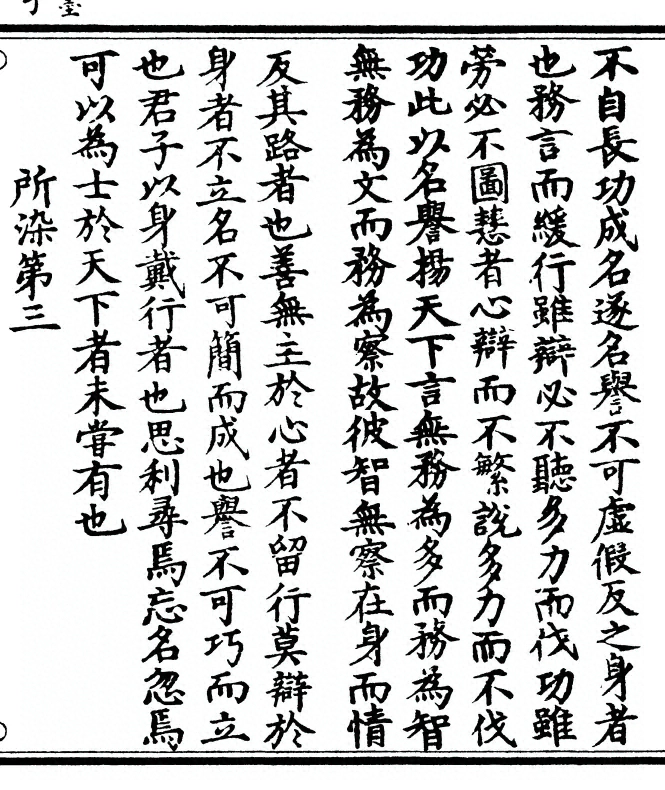 不自長功成名遂名譽不可虛假反之身者
也務言而緩行雖辯必不聽多力而伐功雖
勞必不圖慧者心辯而不繁說多力而不伐
功此以名譽揚天下言無務為多而務為智
無務為文而務為察故彼智無察在身而情
反其路者也善無主於心者不留行莫辯於
身者不立名不可簡而成也譽不可巧而立
也君子以身戴行者也思利尋焉忘名忽焉
可以為士於天下者未嘗有也
所染第三